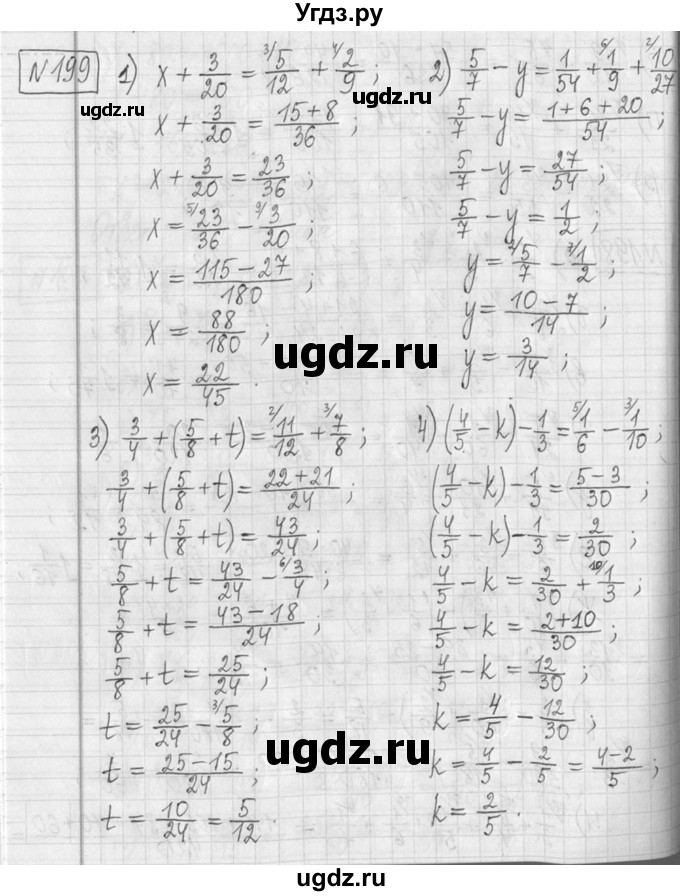 Угдз.ру
№199 1) x + 3/20 = ³⁾5/12 + ⁴⁾2/9 ;
x + 3/20 = (15+8)/36 ;
x + 3/20 = 23/36 ;
x = ⁵⁾23/36 − ⁹⁾3/20 ;
x = (115−27)/180 ;
x = 88/180 ;
x = 22/45 .
2) 5/7 − y = 1/54 + ⁶⁾1/9 + ²⁾10/27
5/7 − y = (1+6+20)/54 ;
5/7 − y = 27/54 ;
5/7 − y = 1/2 ;
y = ²⁾5/7 − ⁷⁾1/2 ;
y = (10−7)/14 ;
y = 3/14 ;
3) 3/4 + (5/8 + t) = ²⁾11/12 + ³⁾7/8 ;
3/4 + (5/8 + t) = (22+21)/24 ;
3/4 + (5/8 + t) = 43/24 ;
5/8 + t = 43/24 − ⁶⁾3/4 ;
5/8 + t = (43−18)/24 ;
5/8 + t = 25/24 ;
t = 25/24 − ³⁾5/8 ;
t = (25−15)/24 ;
t = 10/24 = 5/12 .
4) (4/5 − k) − 1/3 = ⁵⁾1/6 − ³⁾1/10 ;
(4/5 − k) − 1/3 = (5−3)/30 ;
(4/5 − k) − 1/3 = 2/30 ;
4/5 − k = 2/30 + ¹⁰⁾1/3 ;
4/5 − k = (2+10)/30 ;
4/5 − k = 12/30 ;
k = 4/5 − 12/30 ;
k = 4/5 − 2/5 = (4−2)/5 ;
k = 2/5 .
ugdz.ru
ugdz.ru
ugdz.ru
ugdz.ru
ugdz.ru
ugdz.ru
Угдз.ру